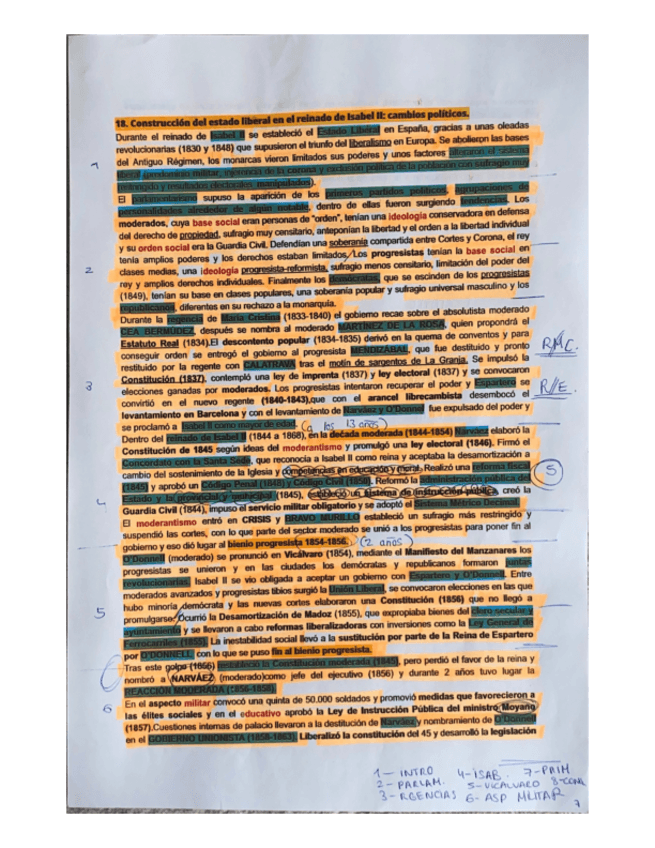 18. Construcción del estado liberal en el reinado de Isabel II: cambios políticos.
Durante el reinado de Isabel II se estableció el Estado Liberal en España, gracias a unas oleadas
revolucionarias (1830 y 1848) que supusieron el triunfo del liberalismo en Europa. Se abolieron las bases
1
del Antiguo Régimen, los monarcas vieron limitados sus poderes y unos factores alteraron el sistema
liberal (predominio militar, injerencia de la corona y exclusión política de la población con sufragio muy
restringido y resultados electorales manipulados).
El parlamentarismo supuso la aparición de los primeros partidos políticos, agrupaciones de
personalidades alrededor de algún notable, dentro de ellas fueron surgiendo tendencias. Los
moderados, cuya base social eran personas de "orden", tenían una ideología conservadora en defensa
del derecho de propiedad, sufragio muy censitario, anteponían la libertad y el orden a la libertad individual
y su orden social era la Guardia Civil. Defendían una soberanía compartida entre Cortes y Corona, el rey
tenía amplios poderes y los derechos estaban limitados. Los progresistas tenían la base social en
2
clases medias, una ideología progresista-reformista, sufragio menos censitario, limitación del poder del
rey y amplios derechos individuales. Finalmente los demócratas, que se escinden de los progresistas
(1849), tenían su base en clases populares, una soberanía popular y sufragio universal masculino y los
republicanos, diferentes en su rechazo a la monarquía.
Durante la regencia de María Cristina (1833-1840) el gobierno recae sobre el absolutista moderado
CEA BERMÚDEZ, después se nombra al moderado MARTÍNEZ DE LA ROSA, quien propondrá el
Estatuto Real (1834).El descontento popular (1834-1835) derivó en la quema de conventos y para
conseguir orden se entregó el gobierno al progresista MENDIZÁBAL, que fue destituido y pronto
R/M C.
restituido por la regente con CALATRAVA tras el motín de sargentos de La Granja. Se impulsó la
Constitución (1837), contempló una ley de imprenta (1837) y ley electoral (1837) y se convocaron
3
elecciones ganadas por moderados. Los progresistas intentaron recuperar el poder y Espartero se
R//E.
convirtió en el nuevo regente (1840-1843),que con el arancel librecambista desembocó el
levantamiento en Barcelona y con el levantamiento de Narváez y O'Donnel fue expulsado del poder y
se proclamó a Isabel II como mayor de edad. (a los 13 años)
Dentro del reinado de Isabel II (1844 a 1868), en la década moderada (1844-1854) Narváez elaboró la
Constitución de 1845 según ideas del moderantismo y promulgó una ley electoral (1846). Firmó el
Concordato con la Santa Sede, que reconocía a Isabel II como reina y aceptaba la desamortización a
cambio del sostenimiento de la Iglesia y competencias en educación y moral. Realizó una reforma fiscal
5
(1845) y aprobó un Código Penal (1848) y Código Civil (1850). Reformó la administración pública del
Estado y la provincial y municipal (1845), estableció un sistema de instrucción pública, creó la
4
Guardia Civil (1844), impuso el servicio militar obligatorio y se adoptó el Sistema Métrico Decimal.
El moderantismo entró en CRISIS y BRAVO MURILLO estableció un sufragio más restringido y
suspendió las cortes, con lo que parte del sector moderado se unió a los progresistas para poner fin al
gobierno y eso dió lugar al bienio progresista 1854-1856. (2 años)
O'Donnell (moderado) se pronunció en Vicálvaro (1854), mediante el Manifiesto del Manzanares los
progresistas se unieron y en las ciudades los demócratas y republicanos formaron juntas
revolucionarias. Isabel II se vio obligada a aceptar un gobierno con Espartero y O'Donnell. Entre
moderados avanzados y progresistas tibios surgió la Unión Liberal, se convocaron elecciones en las que
hubo minoría demócrata y las nuevas cortes elaboraron una Constitución (1856) que no llegó a
5
promulgarse. Ocurrió la Desamortización de Madoz (1855), que expropiaba bienes del clero secular y
ayuntamiento y se llevaron a cabo reformas liberalizadoras con inversiones como la Ley General de
Ferrocarriles (1855). La inestabilidad social llevó a la sustitución por parte de la Reina de Espartero
por O'DONNELL, con lo que se puso fin al bienio progresista.
Tras este golpe (1856) estableció la Constitución moderada (1845), pero perdió el favor de la reina y
nombró a NARVÁEZ (moderado)como jefe del ejecutivo (1856) y durante 2 años tuvo lugar la
REACCIÓN MODERADA (1856-1858).
6
En el aspecto militar convocó una quinta de 50.000 soldados y promovió medidas que favorecieron a
las élites sociales y en el educativo aprobó la Ley de Instrucción Pública del ministro Moyano
(1857).Cuestiones internas de palacio llevaron a la destitución de Narváez y nombramiento de O'Donnell
en el GOBIERNO UNIONISTA (1858-1863). Liberalizó la constitución del 45 y desarrolló la legislación
1 - INTRO 4 - ISAB. 7 - PAIM
2 - PARLAM. 5 - VICALVARO
3 - RGENCIAS 6 - ASP MILITAR
7